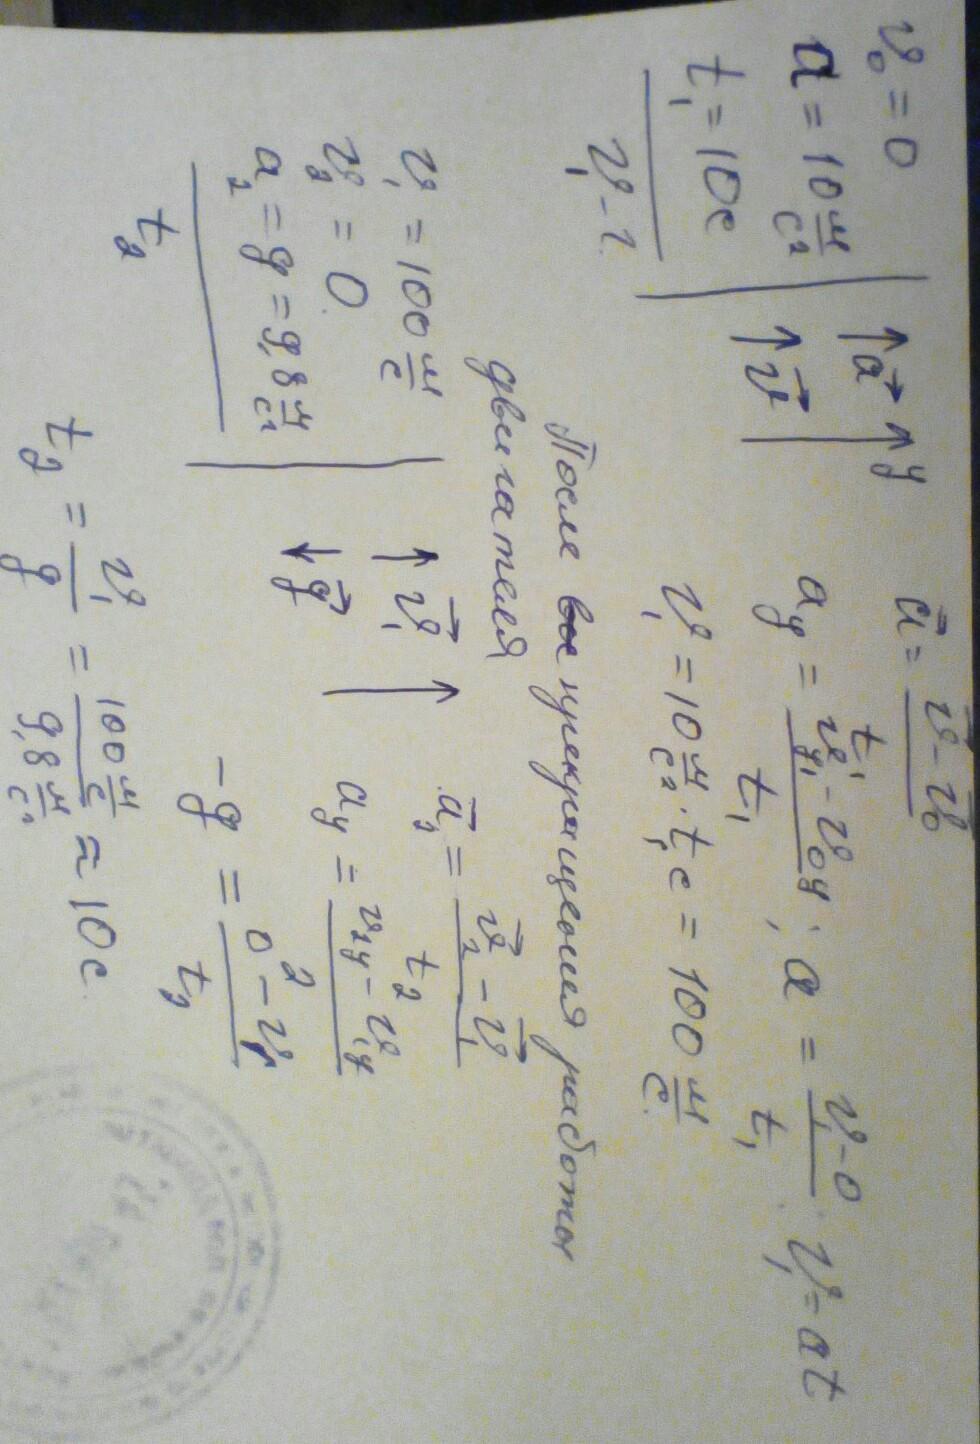 v₀ = 0
a = 10 м/с²
t₁ = 10с
v₁ - ?
↑a⃗ ↑y
↑v⃗
a⃗ = (v⃗ - v⃗₀)/t₁
a_y = (v_y₁ - v_0y)/t₁ ; a = (v₁ - 0)/t₁ v₁ = at
v₁ = 10 м/с² · t₁с = 100 м/с
После прекращения работы
двигателя
v₁ = 100 м/с
v₂ = 0
a₂ = g = 9,8 м/с²
t₂
↑v⃗₁ ↑
↓g⃗
a⃗₂ = (v⃗₂ - v⃗₁)/t₂
a_y = (v_2y - v_1y)/t₂
-g = (0 - v₁)/t₂
t₂ = v₁/g = (100 м/с)/(9,8 м/с²) ≈ 10с